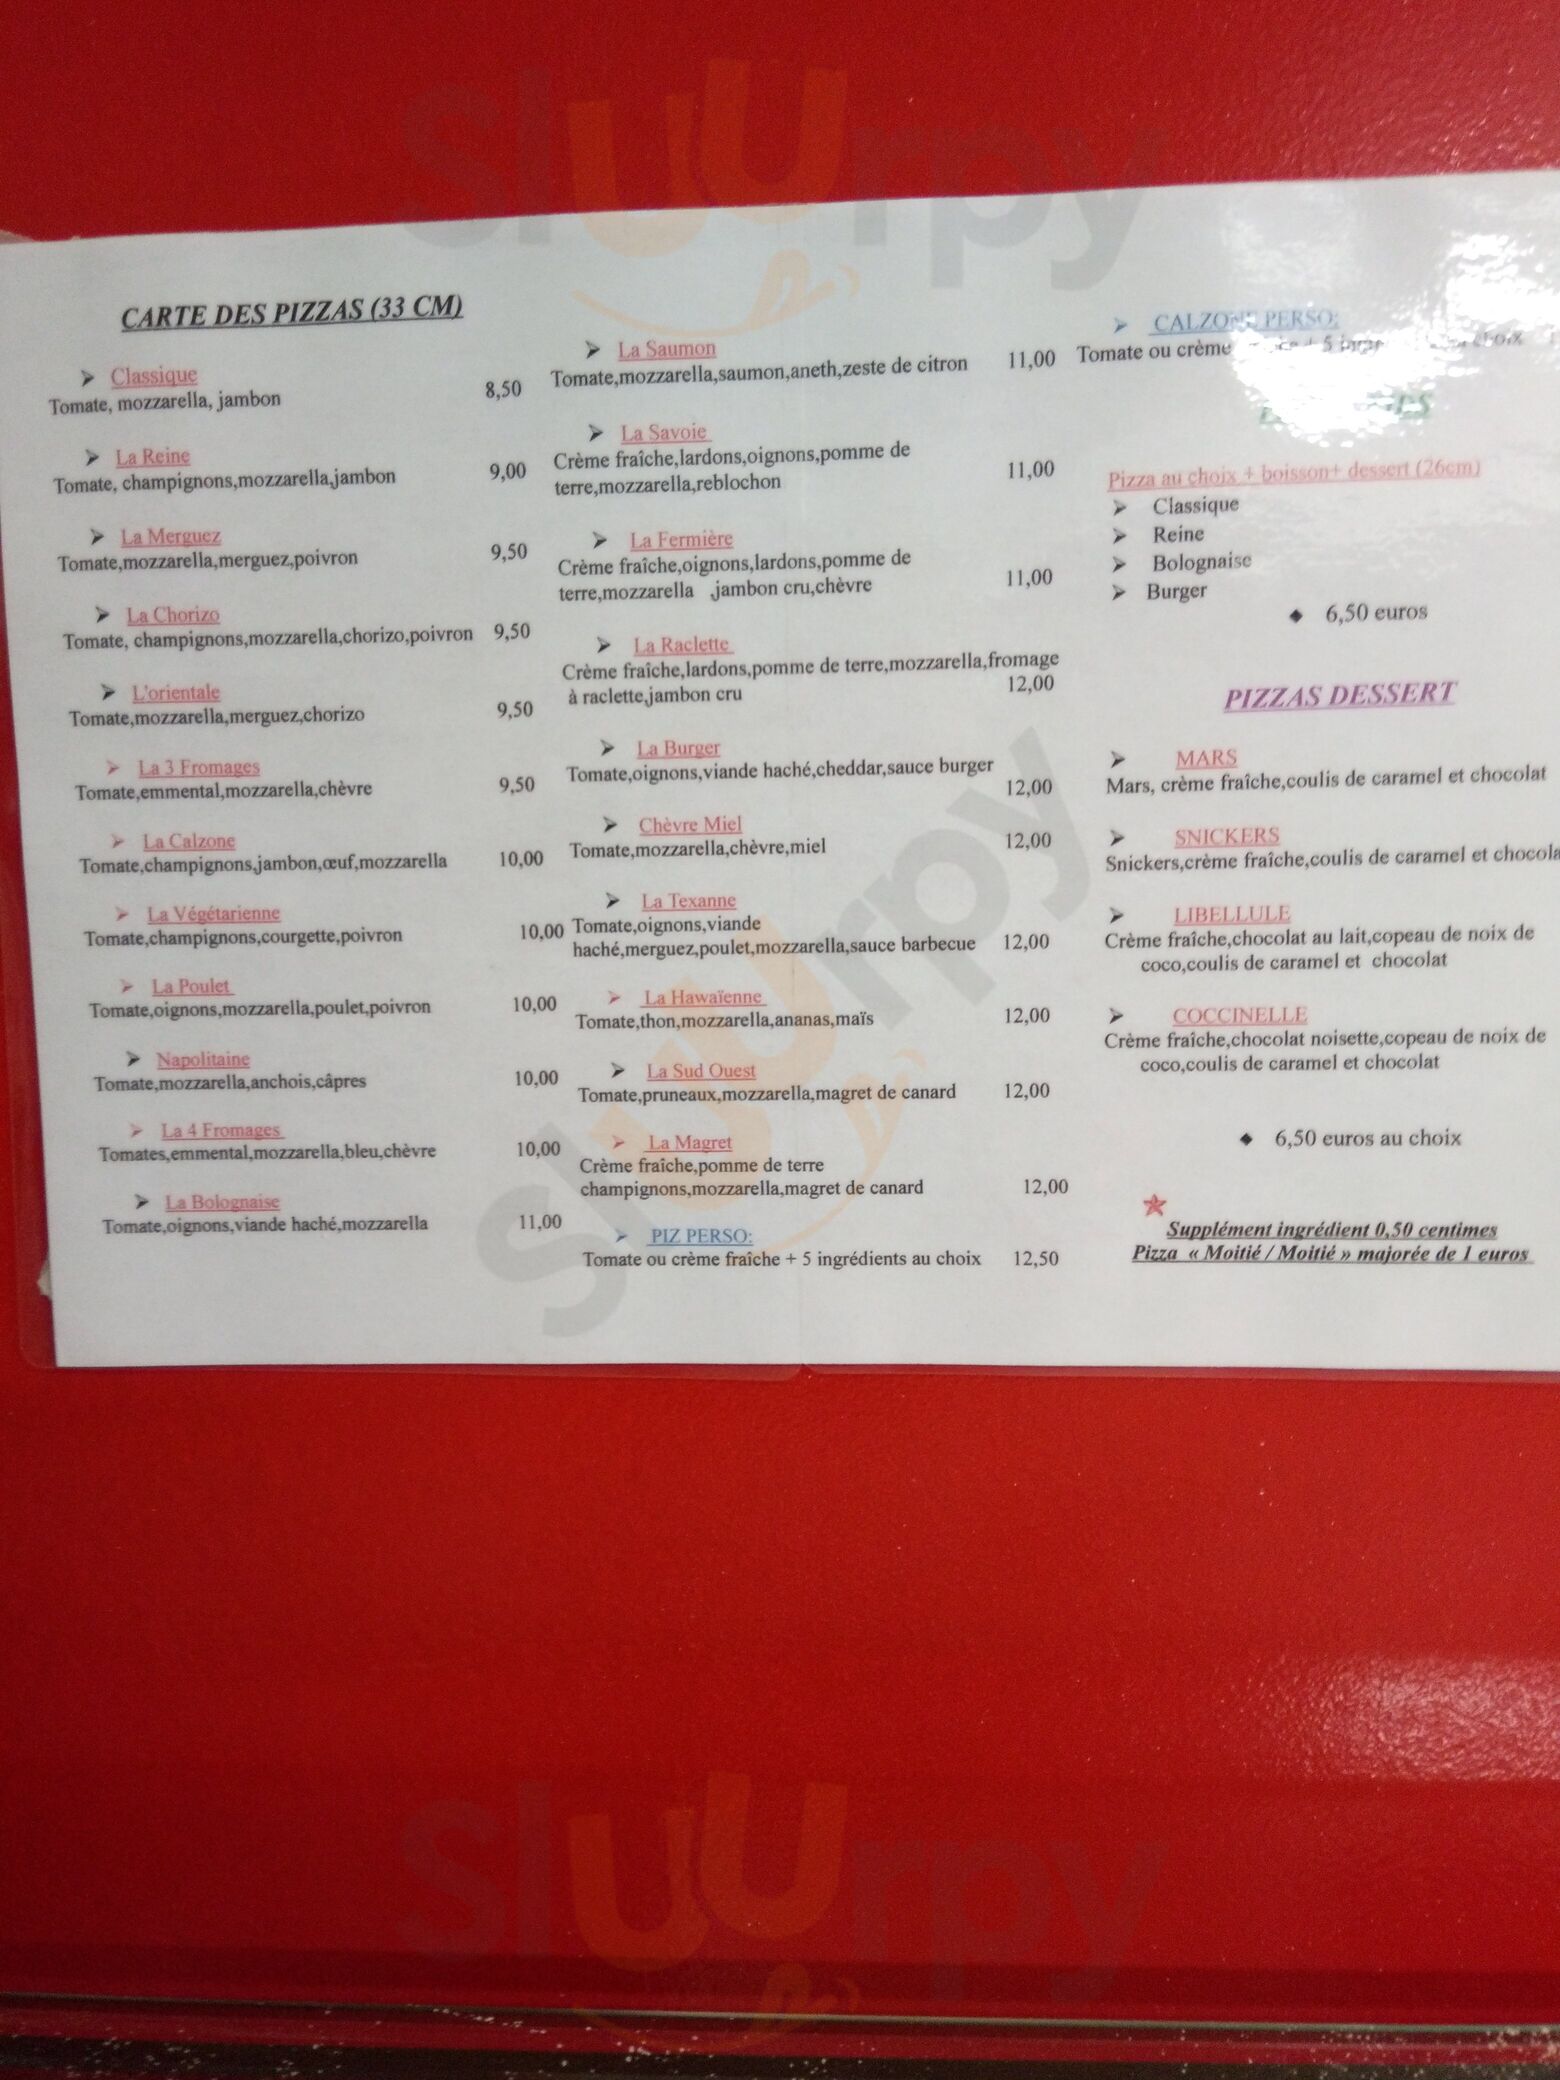 CARTE DES PIZZAS (33 CM)
Classique
Tomate, mozzarella, jambon 8,50
La Reine
Tomate, champignons,mozzarella,jambon 9,00
La Merguez
Tomate,mozzarella,merguez,poivron 9,50
La Chorizo
Tomate, champignons,mozzarella,chorizo,poivron 9,50
L'orientale
Tomate,mozzarella,merguez,chorizo 9,50
La 3 Fromages
Tomate,emmental,mozzarella,chèvre 9,50
La Calzone
Tomate,champignons,jambon,œuf,mozzarella 10,00
La Végétarienne
Tomate,champignons,courgette,poivron 10,00
La Poulet
Tomate,oignons,mozzarella,poulet,poivron 10,00
Napolitaine
Tomate,mozzarella,anchois,câpres 10,00
La 4 Fromages
Tomates,emmental,mozzarella,bleu,chèvre 10,00
La Bolognaise
Tomate,oignons,viande haché,mozzarella 11,00
La Saumon
Tomate,mozzarella,saumon,aneth,zeste de citron 11,00
La Savoie
Crème fraîche,lardons,oignons,pomme de
terre,mozzarella,reblochon 11,00
La Fermière
Crème fraîche,oignons,lardons,pomme de
terre,mozzarella ,jambon cru,chèvre 11,00
La Raclette
Crème fraîche,lardons,pomme de terre,mozzarella,fromage
à raclette,jambon cru 12,00
La Burger
Tomate,oignons,viande haché,cheddar,sauce burger
12,00
Chèvre Miel
Tomate,mozzarella,chèvre,miel 12,00
La Texanne
Tomate,oignons,viande
haché,merguez,poulet,mozzarella,sauce barbecue 12,00
La Hawaïenne
Tomate,thon,mozzarella,ananas,maïs 12,00
La Sud Ouest
Tomate,pruneaux,mozzarella,magret de canard 12,00
La Magret
Crème fraîche,pomme de terre
champignons,mozzarella,magret de canard 12,00
PIZ PERSO:
Tomate ou crème fraîche + 5 ingrédients au choix 12,50
CALZONE PERSO:
Tomate ou crème + 5 choix
Pizza au choix + boisson+ dessert (26cm)
Classique
Reine
Bolognaise
Burger
6,50 euros
PIZZAS DESSERT
MARS
Mars, crème fraîche,coulis de caramel et chocolat
SNICKERS
Snickers,crème fraîche,coulis de caramel et chocola
LIBELLULE
Crème fraîche,chocolat au lait,copeau de noix de
coco,coulis de caramel et chocolat
COCCINELLE
Crème fraîche,chocolat noisette,copeau de noix de
coco,coulis de caramel et chocolat
6,50 euros au choix
Supplément ingrédient 0,50 centimes
Pizza « Moitié / Moitié » majorée de 1 euros
sluurpy
sluurpy
sluurpy